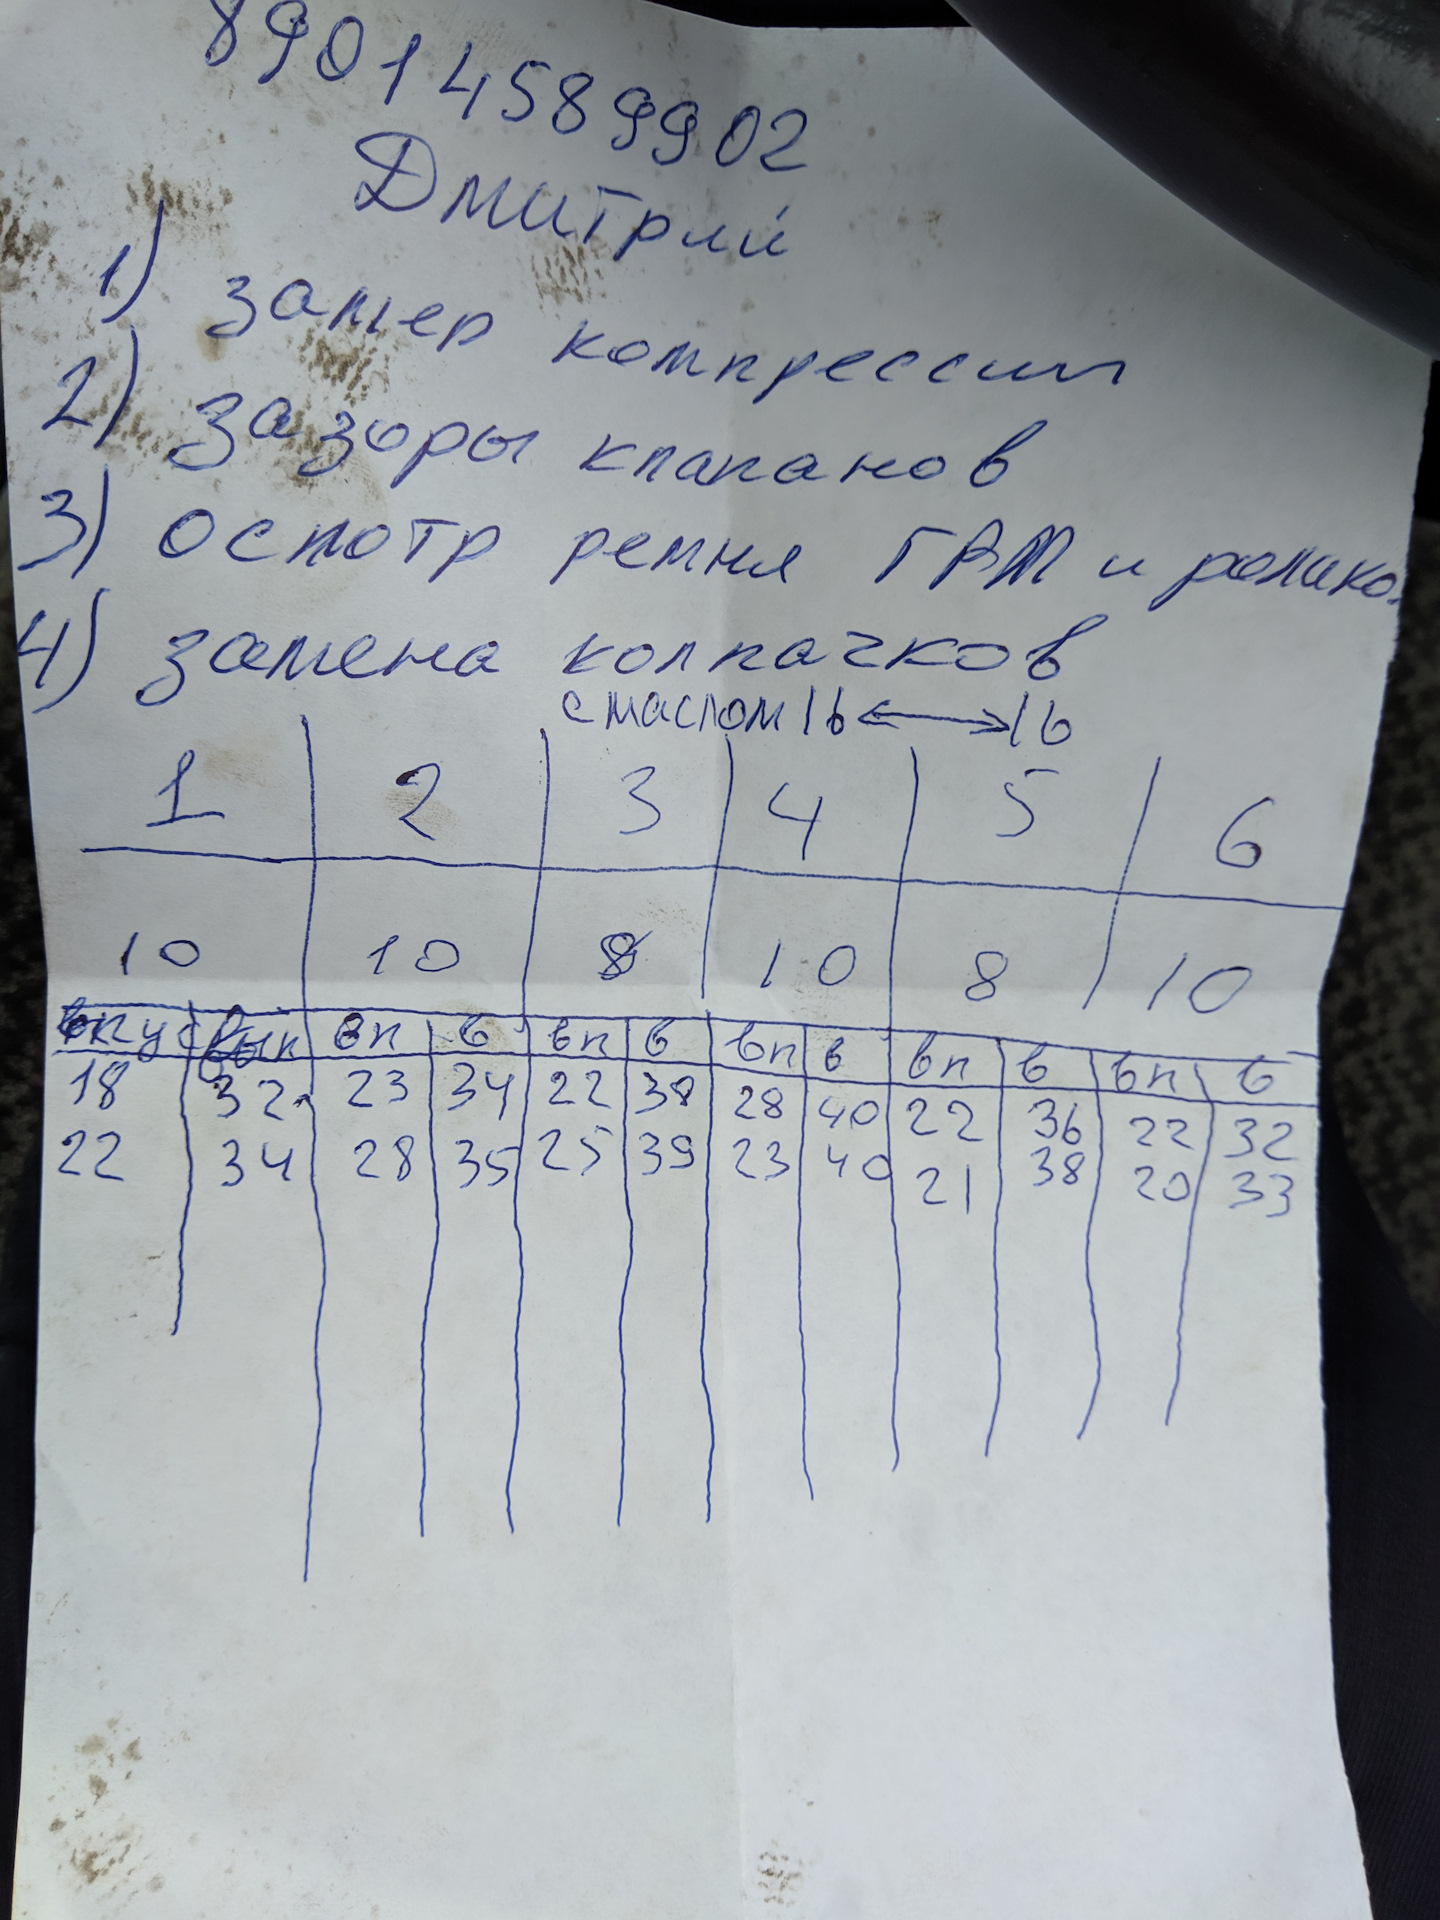 89014589902
Дмитрий
1) замер компрессии
2) зазоры клапанов
3) осмотр ремня ГРМ и ролико
4) замена колпачков
с маслом 16 ↔ 16
1 2 3 4 5 6
10 10 8 10 8 10
впуск вып вп в вп в вп в вп в вп в
18 32 23 34 22 38 28 40 22 36 22 32
22 34 28 35 25 39 23 40 21 38 20 33